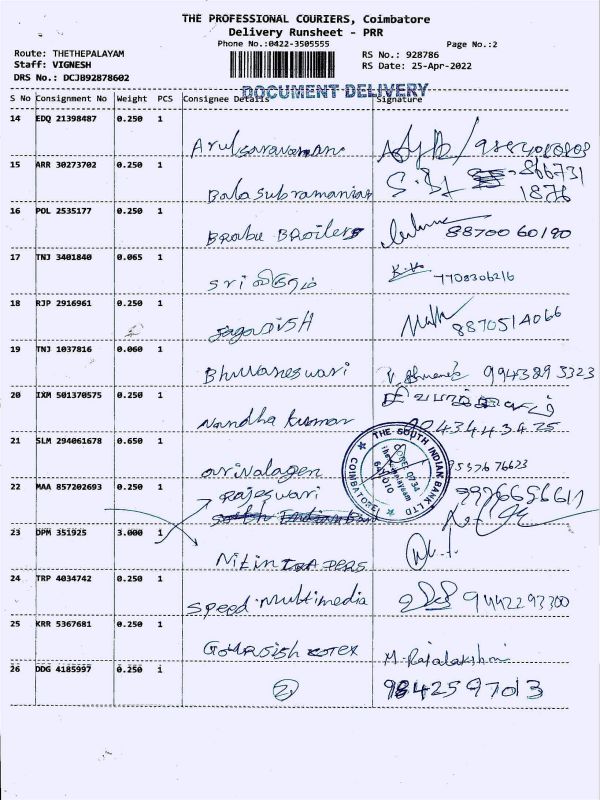 THE PROFESSIONAL COURIERS, Coimbatore
Delivery Runsheet - PRR
Phone No.:0422-3505555
Page No.:2
Route: THETHEPALAYAM
Staff: VIGNESH
DRS No.: DCJB92878602
RS No.: 928786
RS Date: 25-Apr-2022
DOCUMENT DELIVERY
S No Consignment No Weight PCS Consignee Details Signature
14 EDQ 21398487 0.250 1
Arulsaravanan
15 ARR 30273702 0.250 1
Balasubramanian 866731
1876
16 POL 2535177 0.250 1
Brabu BRoilers 88700 60190
17 TNJ 3401840 0.065 1
sri 7708306216
18 RJP 2916961 0.250 1
Jagadish 8870514066
19 TNJ 1037816 0.060 1
Bhuvaneswari 9943893323
20 IXM 501370575 0.250 1
Nandha kumar
21 SLM 294061678 0.650 1
THE SOUTH INDIAN BANK LTD
COIMBATORE
641010
arivalagen
22 MAA 857202693 0.250 1
Rajeswari
23 DPM 351925 3.000 1
Nitin
24 TRP 4034742 0.250 1
Speed Multimedia 9442293300
25 KRR 5367681 0.250 1
M. Rajalakshmi
26 DDG 4185997 0.250 1
2 9842597013